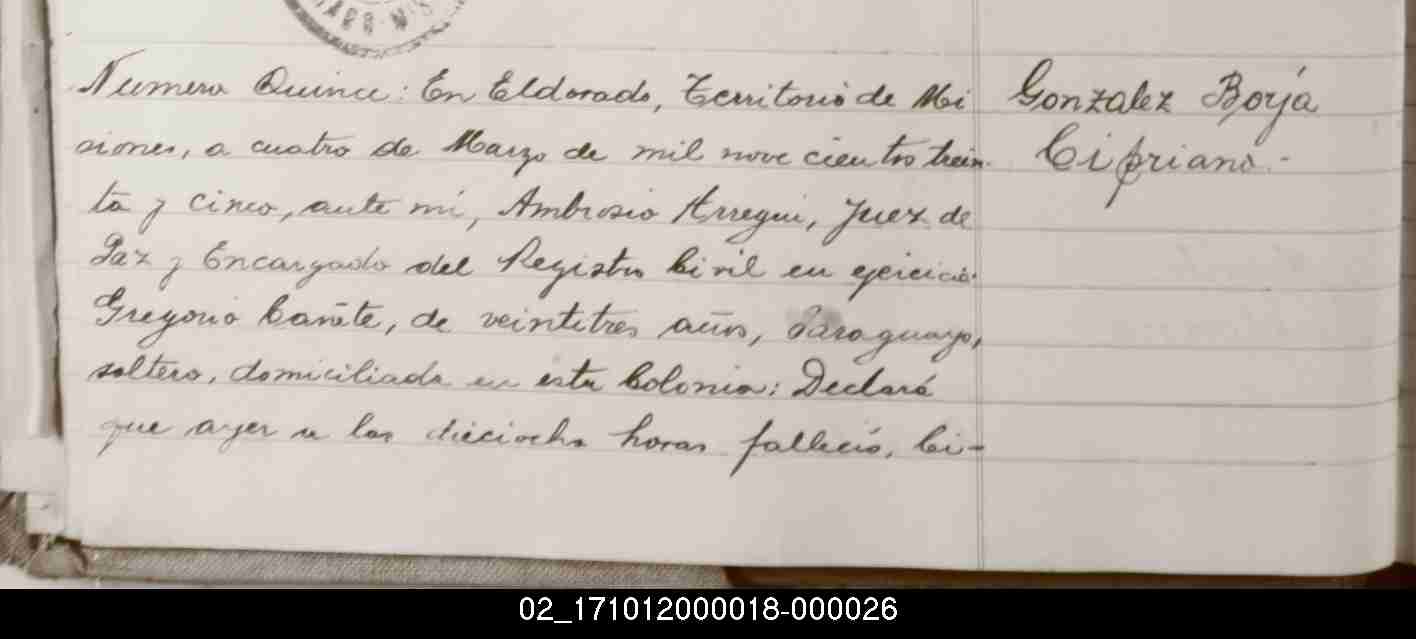 Numero Quince: En Eldorado, Territorio de Mi
siones, a cuatro de Marzo de mil nove cientos trein-
ta y cinco, ante mi, Ambrosio Arregui, Juez de
Paz y Encargado del Registro Civil en ejercicio.
Gregorio Cañete, de veintitres años, Paraguayo,
soltero, domiciliado en esta Colonia: Declaró
que ayer a las dieciocho horas falleció, Ci-
Gonzalez Borja
Cipriano.-
02_171012000018-000026